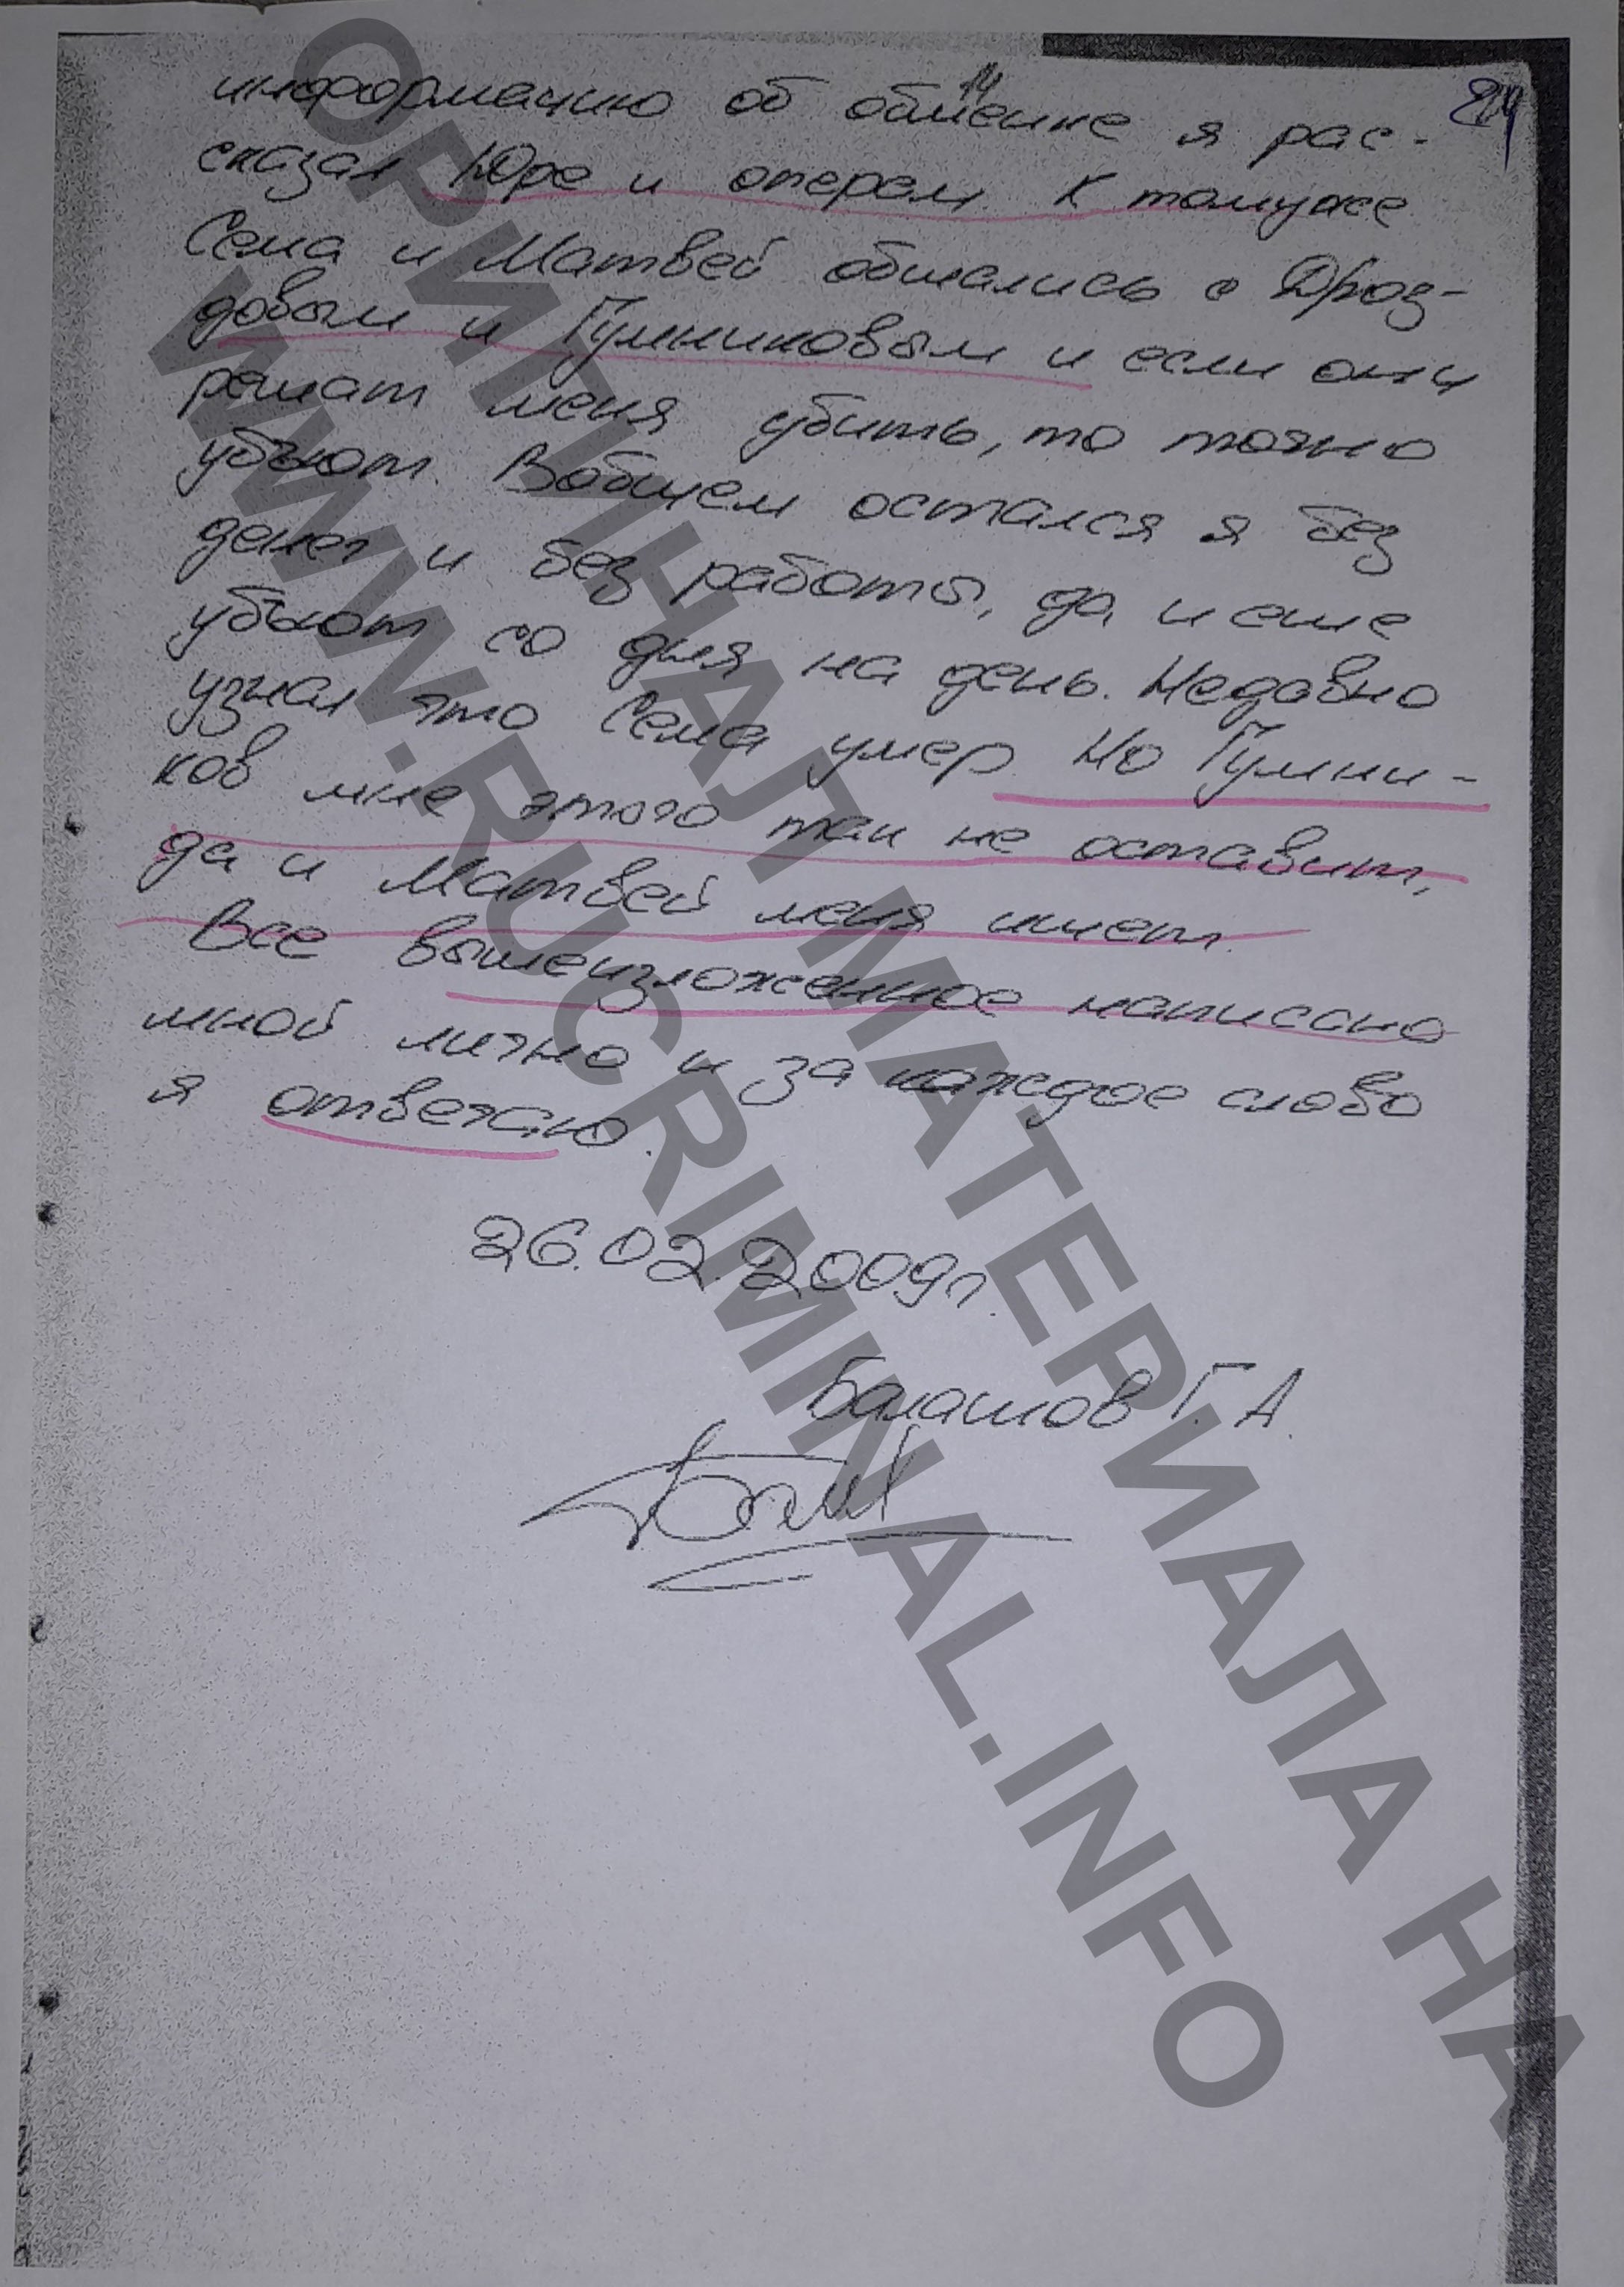 14
информацию об обмене я рас-
сказал Юре и операм. К томуже
Сема и Матвей общались с Дроз-
довым и Гумниковым и если они
решат меня убить, то точно
убьют. Вобщем остался я без
денег и без работы, да и еще
убьют со дня на день. Недавно
узнал что Сема умер. Но Гумни-
ков мне этого так не оставит,
да и Матвей меня ищет.
Все вышеизложенное написано
мной лично и за каждое слово
я отвечаю.
26.02.2009г.
Балашов Г.А.
ОРИГИНАЛ МАТЕРИАЛА НА
WWW.RUCRIMINAL.INFO